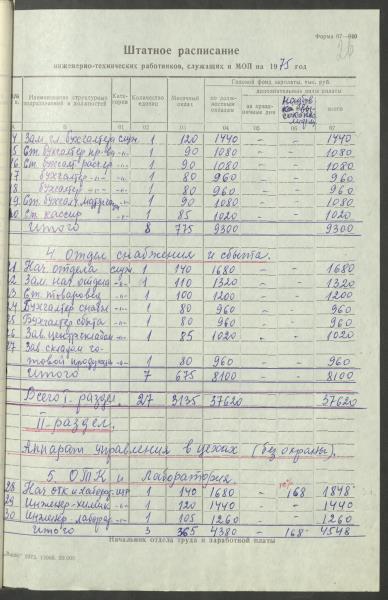 Форма 67-
26
Штатное расписание
инженерно-технических работников, служащих и МОП на 1975 год
Наименование структурных подразделений и должностей
Количество единиц
Месячный оклад
Годовой фонд зарплаты, тыс. руб.
по должностным окладам
дополнительные виды оплаты
всего
Зам. гл. бухгалтера служ. 1 120 1440 - - 1440
Ст. бухгалтер -"- 1 90 1080 - - 1080
Ст. бухгал. расчет. -"- 1 90 1080 - - 1080
17 бухгалтер -"- 1 80 960 - - 960
18 бухгалтер -"- 1 80 960 - - 960
19 Ст. бухгалт. -"- 1 90 1080 - - 1080
Ст. кассир -"- 1 85 1020 - - 1020
Итого 8 775 9300 9300
4. Отдел снабжения и сбыта.
21 Нач. отдела служ. 1 140 1680 - - 1680
22 Зам. нач. отдела -"- 1 110 1320 - - 1320
23 Ст. товаровед -"- 1 100 1200 - - 1200
24 Бухгалтер снабж. -"- 1 80 960 - - 960
25 Бухгалтер сбыта -"- 1 80 960 - - 960
26 Зав. центр. складом -"- 1 85 1020 - - 1020
27 Зав. складом го-
товой продукции -"- 1 80 960 - - 960
Итого 7 675 8100 - - 8100
Всего I раздел. 27 3135 37620 37620
II раздел.
Аппарат управления в цехах (без охраны).
5. ОТК и лаборатория.
10%
28 Нач. отк и лаборат. итр 1 140 1680 - 168 1848
29 Инженер-химик -"- 1 120 1440 - - 1440
30 Инженер-лаборат. -"- 1 105 1260 - - 1260
Итого 3 365 4380 - 168 4548
Начальник отдела труда и заработной платы